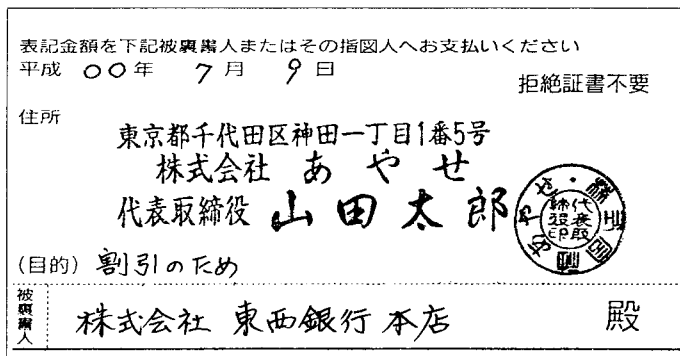 表記金額を下記被裏書人またはその指図人へお支払いください
平成 00年 7月 9日
拒絶証書不要
住所
東京都千代田区神田一丁目1番5号
株式会社 あやせ
代表取締役 山田太郎
代表取
締役印
(目的) 割引のため
被裏書人
株式会社 東西銀行 本店 殿